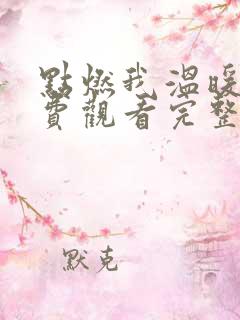 點燃我溫暖
費觀看完整
默克